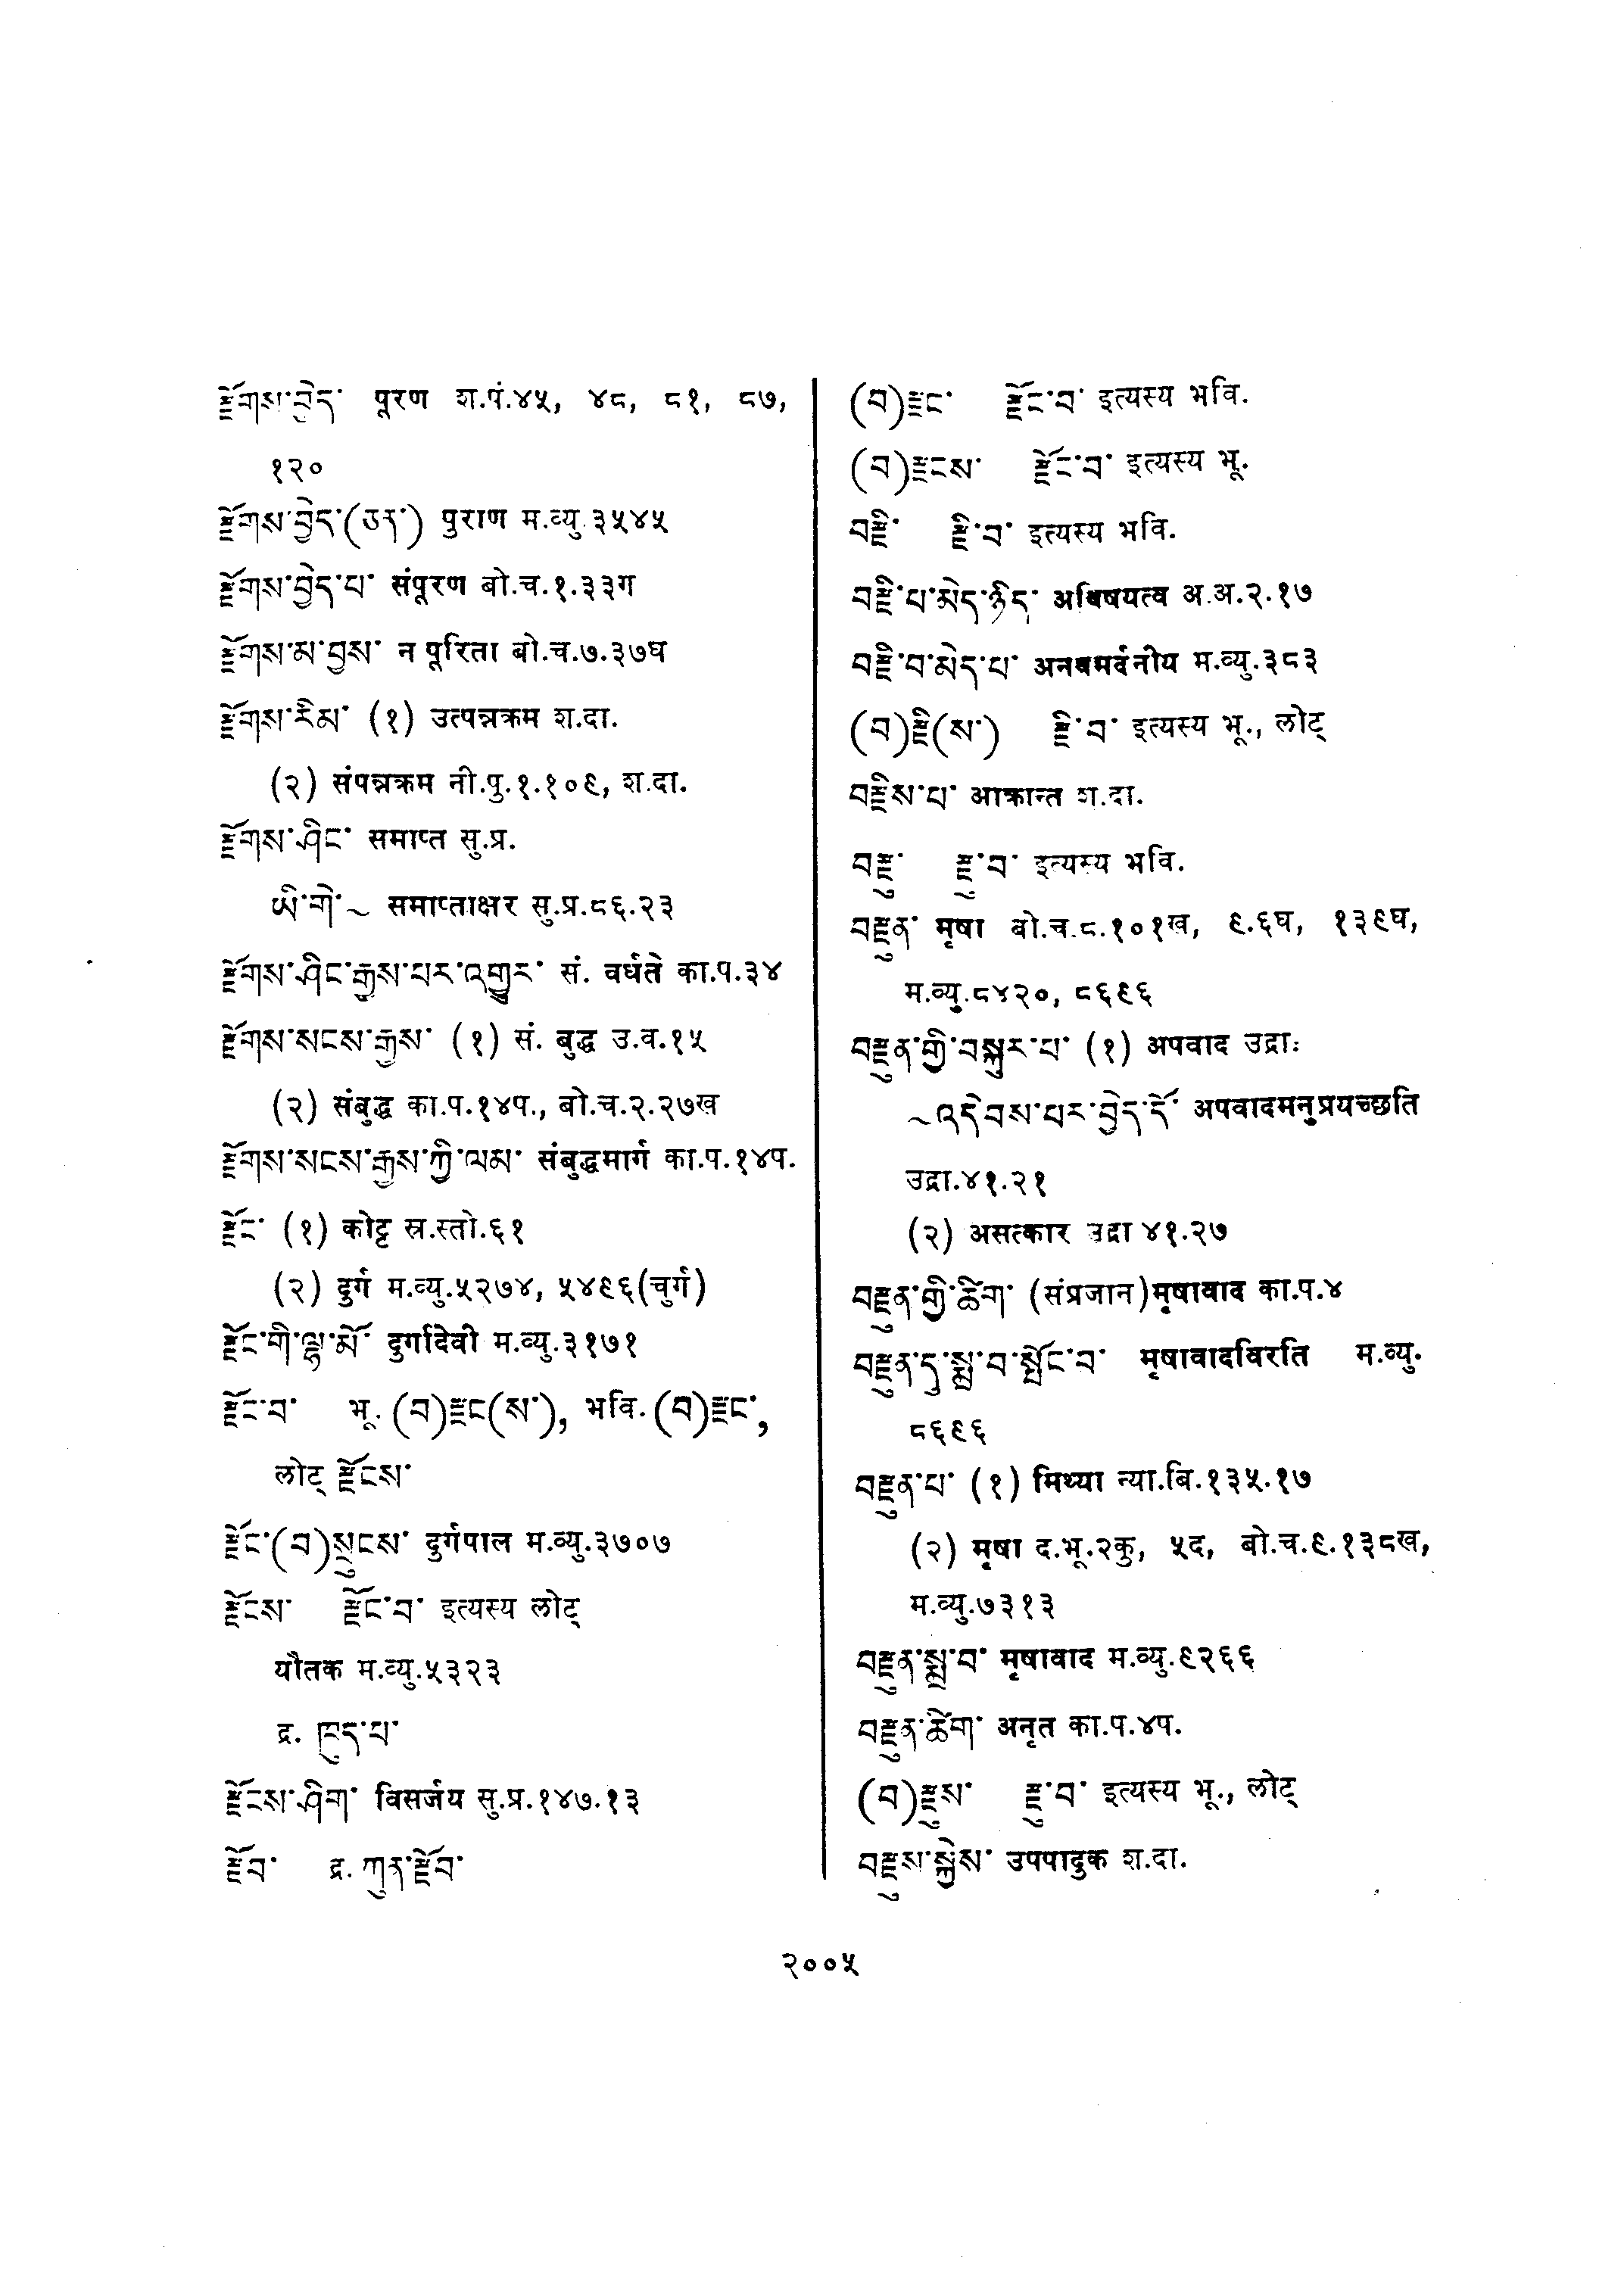 རྫོགས་བྱེད་ पूरण श.पं.४५, ४८, ८१, ८७,
१२०
རྫོགས་བྱེད་(ཅན་) पुराण म.व्यु.३५४५
རྫོགས་བྱེད་པ་ संपूरण बो.च.१.३३ग
རྫོགས་མ་བྱས་ न पूरिता बो.च.७.३७घ
རྫོགས་རིམ་ (१) उत्पन्नक्रम श.दा.
(२) संपन्नक्रम नी.पु.१.१०९, श.दा.
རྫོགས་ཤིང་ समाप्त सु.प्र.
ཡི་གེ་~ समाप्ताक्षर सु.प्र.८६.२३
རྫོགས་ཤིང་རྒྱས་པར་འགྱུར་ सं. वर्धते का.प.३४
རྫོགས་སངས་རྒྱས་ (१) सं. बुद्ध उ.व.१५
(२) संबुद्ध का.प.१४प., बो.च.२.२७ख
རྫོགས་སངས་རྒྱས་ཀྱི་ལམ་ संबुद्धमार्ग का.प.१४प.
རྫོང་ (१) कोट्ट स्र.स्तो.६१
(२) दुर्ग म.व्यु.५२७४, ५४९६(चुर्ग)
རྫོང་གི་ལྷ་མོ་ दुर्गादेवी म.व्यु.३१७१
རྫོང་བ་ भू. (བ)རྫང(ས་), भवि. (བ)རྫང་,
लोट् རྫོངས་
རྫོང་(བ)སྲུངས་ दुर्गपाल म.व्यु.३७०७
རྫོངས་ རྫོང་བ་ इत्यस्य लोट्
यौतक म.व्यु.५३२३
द्र. ཁུད་པ་
རྫོངས་ཤིག་ विसर्जय सु.प्र.१४७.१३
རྫོབ་ द्र. ཀུན་རྫོབ་
(བ)རྫང་ རྫོང་བ་ इत्यस्य भवि.
(བ)རྫངས་ རྫོང་བ་ इत्यस्य भू.
བརྫི་ རྫི་བ་ इत्यस्य भवि.
བརྫི་པ་མེད་ཉིད་ अविषयत्व अ.अ.२.१७
བརྫི་བ་མེད་པ་ अनवमर्दनीय म.व्यु.३८३
(བ)རྫི(ས་) རྫི་བ་ इत्यस्य भू., लोट्
བརྫིས་པ་ आक्रान्त श.दा.
བརྫུ་ རྫུ་བ་ इत्यस्य भवि.
བརྫུན་ मृषा बो.च.८.१०१ख, ९.६घ, १३९घ,
म.व्यु.८४२०, ८६९६
བརྫུན་གྱི་བསྐུར་པ་ (१) अपवाद उद्राः
~འདེབས་པར་བྱེད་དོ་ अपवादमनुप्रयच्छति
उद्रा.४१.२१
(२) असत्कार उद्रा ४१.२७
བརྫུན་གྱི་ཚིག་ (संप्रजान)मृषावाद का.प.४
བརྫུན་དུ་སྨྲ་བ་སྤོང་བ་ मृषावादविरति म.व्यु.
८६९६
བརྫུན་པ་ (१) मिथ्या न्या.बि.१३५.१७
(२) मृषा द.भू.२कु, ५द, बो.च.९.१३८ख,
म.व्यु.७३१३
བརྫུན་སྨྲ་བ་ मृषावाद म.व्यु.९२६६
བརྫུན་ཚིག་ अनृत का.प.४प.
(བ)རྫུས་ རྫུ་བ་ इत्यस्य भू., लोट्
བརྫུས་སྐྱེས་ उपपादुक श.दा.
२००५